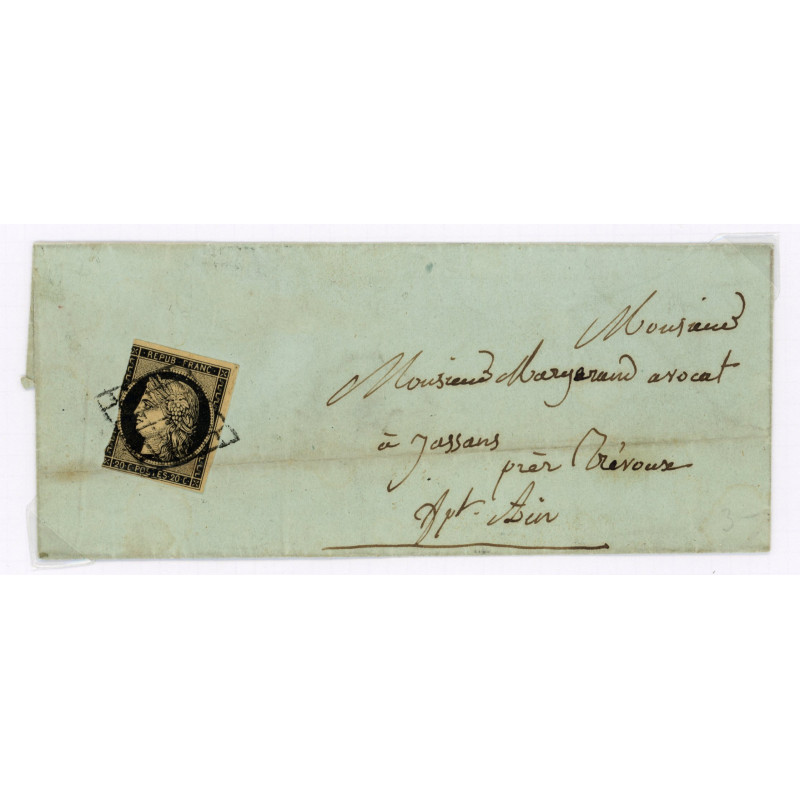 REPUB. FRANC.
20 C. POSTES 20 C.
Monsieur
Monsieur Margerand avocat
à Jassans
près Trévoux
Dpt. Ain
3-